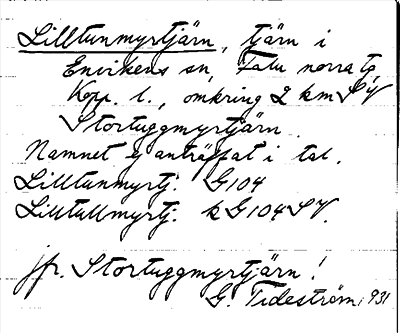 Lilltunmyrtjärn, tjärn i
Envikens sn, Falu norra tg,
Kopp. l., omkring 2 km SV
Stortuggmyrtjärn.
Namnet ej anträffat i tal.
Lilltunmyrtj. G104
Lilltallmyrtj. k G104SV.
jfr. Stortuggmyrtjärn!
G. Tideström 1931